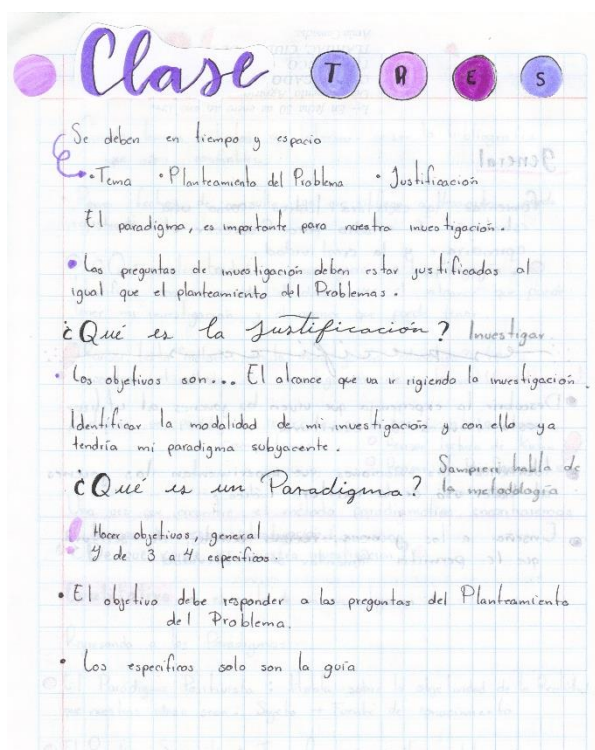 Clase TRES
Se deben en tiempo y espacio
• Tema • Planteamiento del Problema • Justificación
El paradigma, es importante para nuestra investigación.
• Las preguntas de investigación deben estar justificadas al
igual que el planteamiento del Problemas.
¿Qué es la Justificación? Investigar
• Los objetivos son... El alcance que va ir rigiendo la investigación.
Identificar la modalidad de mi investigación y con ello ya
tendría mi paradigma subyacente.
Sampieri habla de
¿Qué es un Paradigma? la metodología
! Hacer objetivos, general
y de 3 a 4 específicos.
• El objetivo debe responder a las preguntas del Planteamiento
del Problema.
• Los específicos solo son la guía